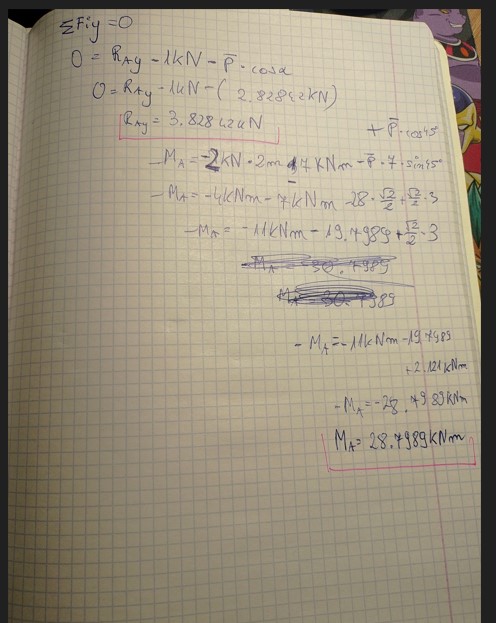 ΣFiy = 0
0 = RAy - 1kN - P̄ · cosα
0 = RAy - 1kN - ( 2.82842kN)
RAy = 3.82842kN
+ P̄ · cos45°
-MA = -2kN · 2m 7kNm - P̄ · 7 · sin45°
-MA = -4kNm - 7kNm 28 · √2/2 + √2/2 · 3
-MA = -11kNm - 19.7989 + √2/2 · 3
MA = 30.7989
MA 30.7989
- MA = -11kNm - 19.7989
+2.121kNm
-MA = -28.7989kNm
MA = 28.7989kNm